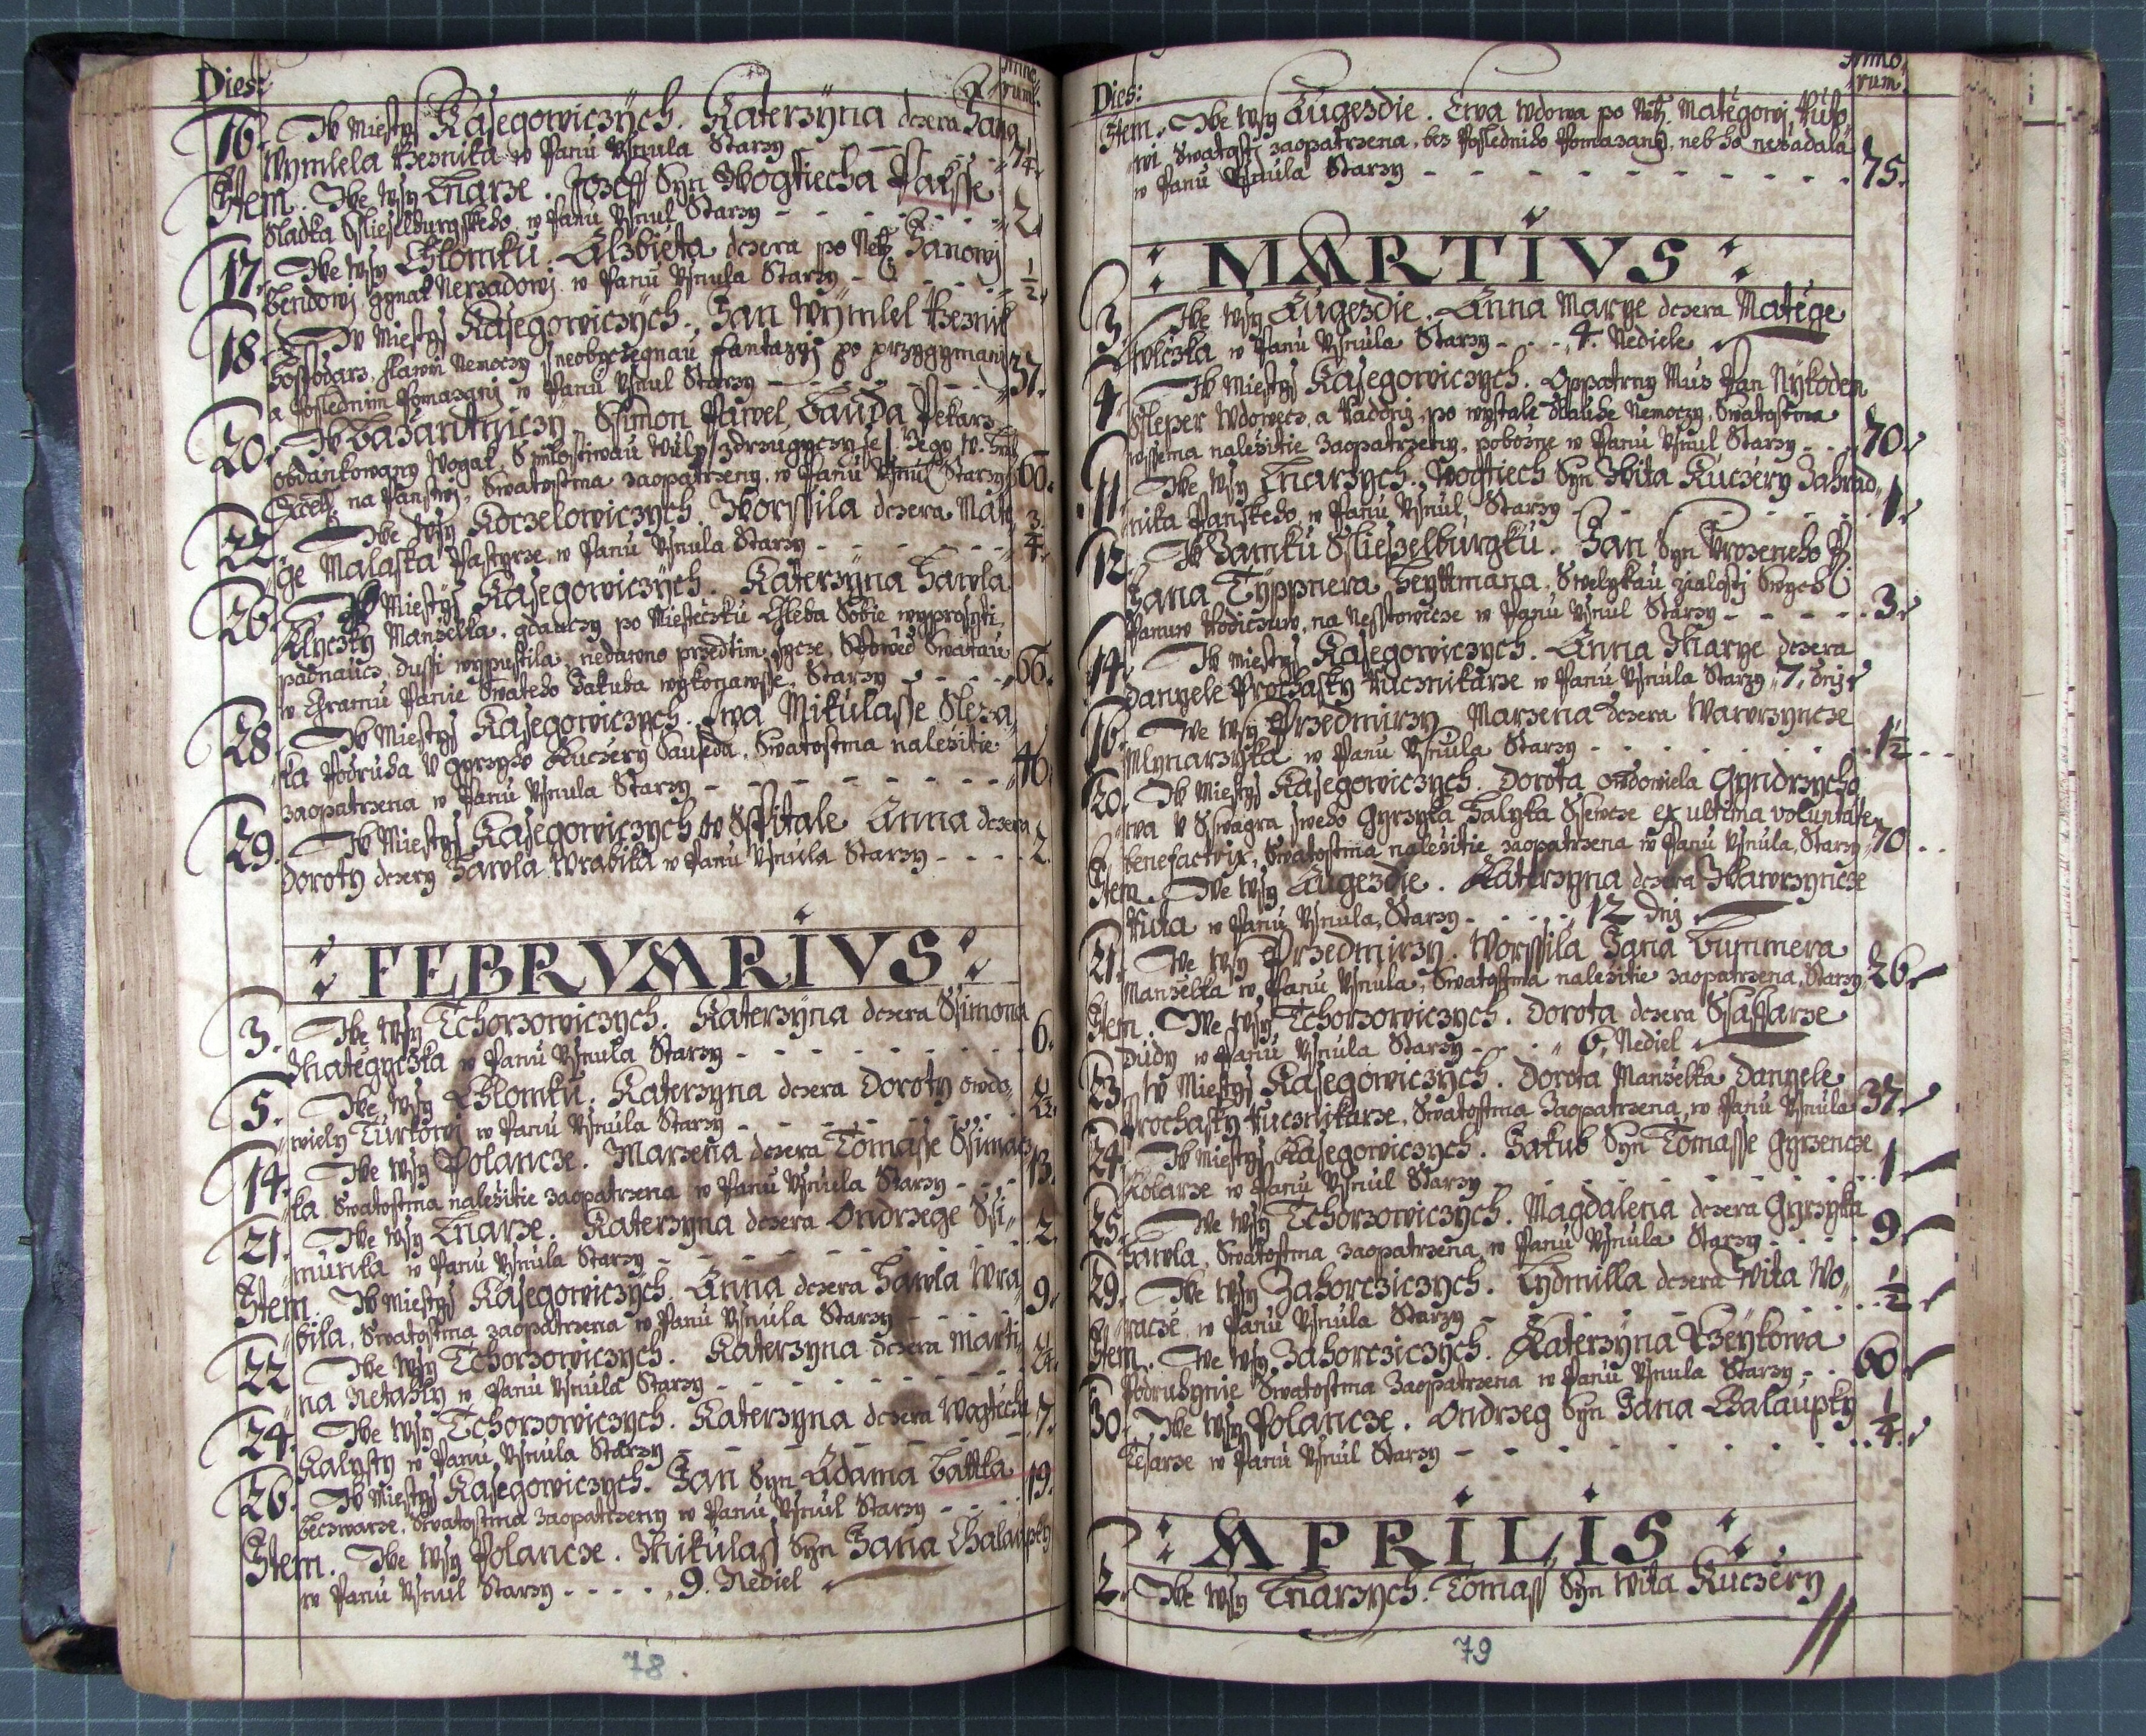 Dies: Anno rum.
16. W Miestys Kasegowiczych. Katerzyna dczera Jana
Wymlela Rzeznika w Panu Vsnula Starzy - - - 74.
Item. We Wsy Tnarze. Jozeff Syn Wogtiecha Paysse
Sladka Sslieselburgskeho w Panu Vsnul Starzy - - - 2
17. We Wsy Chlomku. Alzbieta dczera po Neb. Janowi
Bendowi, gynak Nerzadowi w Panu Vsnula Starzy - - 1/2
18. W Miestys Kasegowiczych. Jan Wymlel Rzeznik
Hospodarz, Nemoczy po przygymani
a Poslednim Pomazani w Panu Vsnul Starzy - - - 37.
20. W Bazantniczy. Ssimon Pawel Pekarz
obdankowany Wogak,
na Panstwi, Swatostma zaopatrzeny, w Panu Vsnul Starzy 60.
22. We Wsy Koczelowiczych. Worssila dczera Mate
ge Malaska Pastyrze, w Panu Vsnula Starzy - - - 3/4.
26. W Miestys Kasegowiczych. Katerzyna Hawla
Klyczky Manzelka, gdauczy po Miesteczku Chleba Sobie wyprosyti,
padnaucz, Dussi wypustila, nedawno przedtim Spowed Swatau
w Chramu Panie Swateho Jakuba wykonawsse, Starzy - - - 66.
28. W Miestys Kasegowiczych. Ewa Mikulasse Sleza
ka Podruha V Gyrzyho Kuczery Sauseda, Swatostma nalezitie
zaopatrzena w Panu Vsnula Starzy - - - 46.
29. W Miestys Kasegowiczych w Sspitale Anna dczera
Doroty dczery Hawla Wrabika w Panu Vsnula Starzy - - - 2.
: FEBRVARIVS :
3. We Wsy Tchorzowiczych. Katerzyna dczera Ssimona
Mategyczka w Panu Vsnula Starzy - - - 6.
5. We Wsy Chlomku. Katerzyna dczera Doroty owdo,
wiely Turkowi w Panu Vsnula Starzy - - -
14. We Wsy Polancze. Marzena dczera Tomasse Ssimacz
ka Swatostma nalezitie zaopatrzena w Panu Vsnula Starzy - - 13.
21. We Wsy Tnarze. Katerzyna dczera Ondrzege Ssi,
munka w Panu Vsnula Starzy - - - 2.
Item. W Miestys Kasegowiczych. Anna dczera Hawla Wra,
bika, Swatostma zaopatrzena w Panu Vsnula Starzy - - - 9.
22. We Wsy Tchorzowiczych. Katerzyna dczera Marti
na Netahly w Panu Vsnula Starzy - - -
24. We Wsy Tchorzowiczych. Katerzyna dczera Wogtiecha
Kalysty w Panu Vsnula Starzy - - - 7.
26. W Miestys Kasegowiczych. Jan Syn Adama Battka
Beczwarze, Swatostma zaopatrzeny w Panu Vsnul Starzy - - - 19.
Item. We Wsy Polancze. Mikulass Syn Jana Chalaupky
w Panu Vsnul Starzy - - - - 9. Nediel
78.
Dies: Anno rum.
Item. We Wsy Augezdie. Ewa Wdowa po Neb. Mategowi
wi Swatosti zaopatrzena, bez Posledniho Pomazani, neb ho nezadala
w Panu Vsnula Starzy - - - 75.
: MARTIVS :
3. We Wsy Augezdie. Anna Marye dczera Matege
w Panu Vsnula Starzy - - - 4. Nediele
4. W Miestys Kasegowiczych. Oppatrny Muz Jan Nykodem
Wdowecz, a Raddni, po wystale Nemoczy, Swatostma
wssema nalezitie zaopatrzeny, pobozne w Panu Vsnul Starzy - - 70.
11. We Wsy Tnarzych. Wogtiech Syn Wita Kuczery Zahrad,
nika Panskeho, w Panu Vsnul, Starzy - - - 1.
12. W Zamku Sslieselburgku. Jan Syn Vrozeneho P.
Jana Typpnera Heyttmana, Swelykau zialosti Swych
Panuw Rodiczuw, na Nesstowicze w Panu Vsnul Starzy - - - 3.
14. W Miestys Kasegowiczych. Anna Marye dczera
Danyele Prochasky Rucznikarze w Panu Vsnula Starzy 7. dnj
16. We Wsy Przedmirzy Marzena dczera Wawrzyncze
Mlynarzyka w Panu Vsnula Starzy - - - 1 1/2
20. W Miestys Kasegowiczych. Dorota owdowiela Gyndrzycho
wa V Sswagra sweho Gyrzyka Halyka Ssewcze ex ultima voluntate
benefactrix, Swatostma nalezitie zaopatrzena w Panu Vsnula, Starzy 70.
Item. We Wsy Augezdie. Katerzyna dczera Wawrzyncze
w Panu Vsnula, Starzy - - - 12 dnj
21. We Wsy Przedmirzy. Worssila Jana Bummera
Manzelka w Panu Vsnula, Swatostma nalezitie zaopatrzena, Starzy 26.
Item. We Wsy Tchorzowiczych. Dorota dczera Ssaffarze
Dudy w Panu Vsnula Starzy - - - 6. Nediel
23. W Miestys Kasegowiczych. Dorota Manzelka Danyele
Prochasky Rucznikarze, Swatostma zaopatrzena, w Panu Vsnula 37.
24. W Miestys Kasegowiczych. Jakub Syn Tomasse Gyrzencze
Kolarze w Panu Vsnul Starzy - - - 1
25. We Wsy Tchorzowiczych. Magdalena dczera Gyrzyka
Hawla, Swatostma zaopatrzena w Panu Vsnula Starzy - - - 9.
29. We Wsy Zahorcziczych. Lydmilla dczera Wita Wo,
racze, w Panu Vsnula Starzy - - - 1/2
Item. We Wsy Zahorcziczych. Katerzyna Rzeykowa
Podruhynie Swatostma zaopatrzena w Panu Vsnula Starzy - - 60
30. We Wsy Polancze. Ondrzeg Syn Jana Chalaupky
Tesarze w Panu Vsnul Starzy - - - 1/4.
: APRILIS :
2. We Wsy Tnarzych. Tomass Syn Wita Kuczery
79